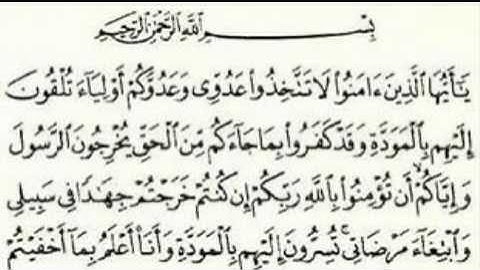 بِسْمِ ٱللَّهِ ٱلرَّحْمَٰنِ ٱلرَّحِيمِ
يَٰٓأَيُّهَا ٱلَّذِينَ ءَامَنُوا۟ لَا تَتَّخِذُوا۟ عَدُوِّى وَعَدُوَّكُمْ أَوْلِيَآءَ تُلْقُونَ
إِلَيْهِم بِٱلْمَوَدَّةِ وَقَدْ كَفَرُوا۟ بِمَا جَآءَكُم مِّنَ ٱلْحَقِّ يُخْرِجُونَ ٱلرَّسُولَ
وَإِيَّاكُمْ أَن تُؤْمِنُوا۟ بِٱللَّهِ رَبِّكُمْ إِن كُنتُمْ خَرَجْتُمْ جِهَٰدًا فِى سَبِيلِى
وَٱبْتِغَآءَ مَرْضَاتِى تُسِرُّونَ إِلَيْهِم بِٱلْمَوَدَّةِ وَأَنَا۠ أَعْلَمُ بِمَآ أَخْفَيْتُمْ